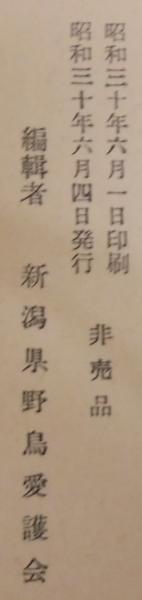 昭和三十年六月一日印刷
昭和三十年六月四日発行
非売品
編輯者　新潟県野鳥愛護会